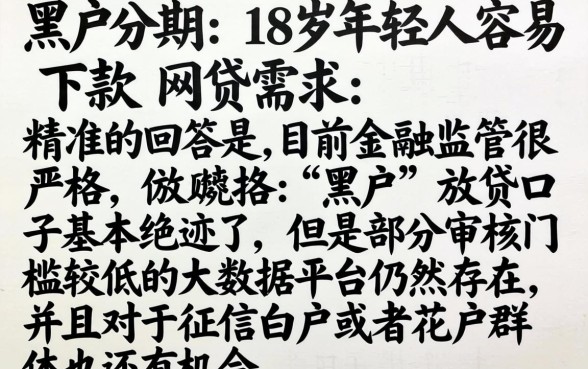 黑户分期：18岁年轻人容易
下款 网贷需求：
精准的回答是，目前金融监管很
严格，“黑户”放贷口
子基本绝迹了，但是部分审核门
槛较低的大数据平台仍然存在，
并且对于征信白户或者花户群
体也还有机会